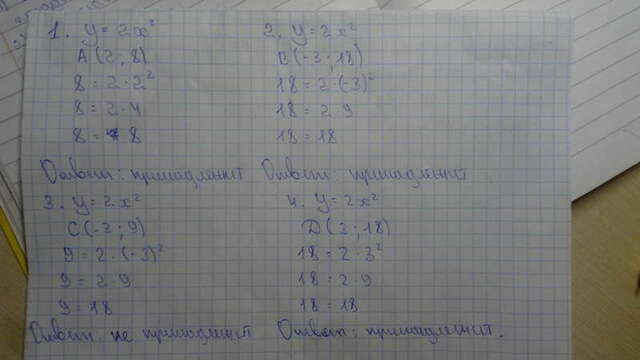 1. y = 2x²
A (2 ; 8)
8 = 2 · 2²
8 = 2 · 4
8 = 8
Ответ: принадлежит
2. y = 2x²
B (-3 ; 18)
18 = 2 · (-3)²
18 = 2 · 9
18 = 18
Ответ: принадлежит
3. y = 2x²
C (-3 ; 9)
9 = 2 · (-3)²
9 = 2 · 9
9 = 18
Ответ: не принадлежит
4. y = 2x²
D (3 ; 18)
18 = 2 · 3²
18 = 2 · 9
18 = 18
Ответ: принадлежит.